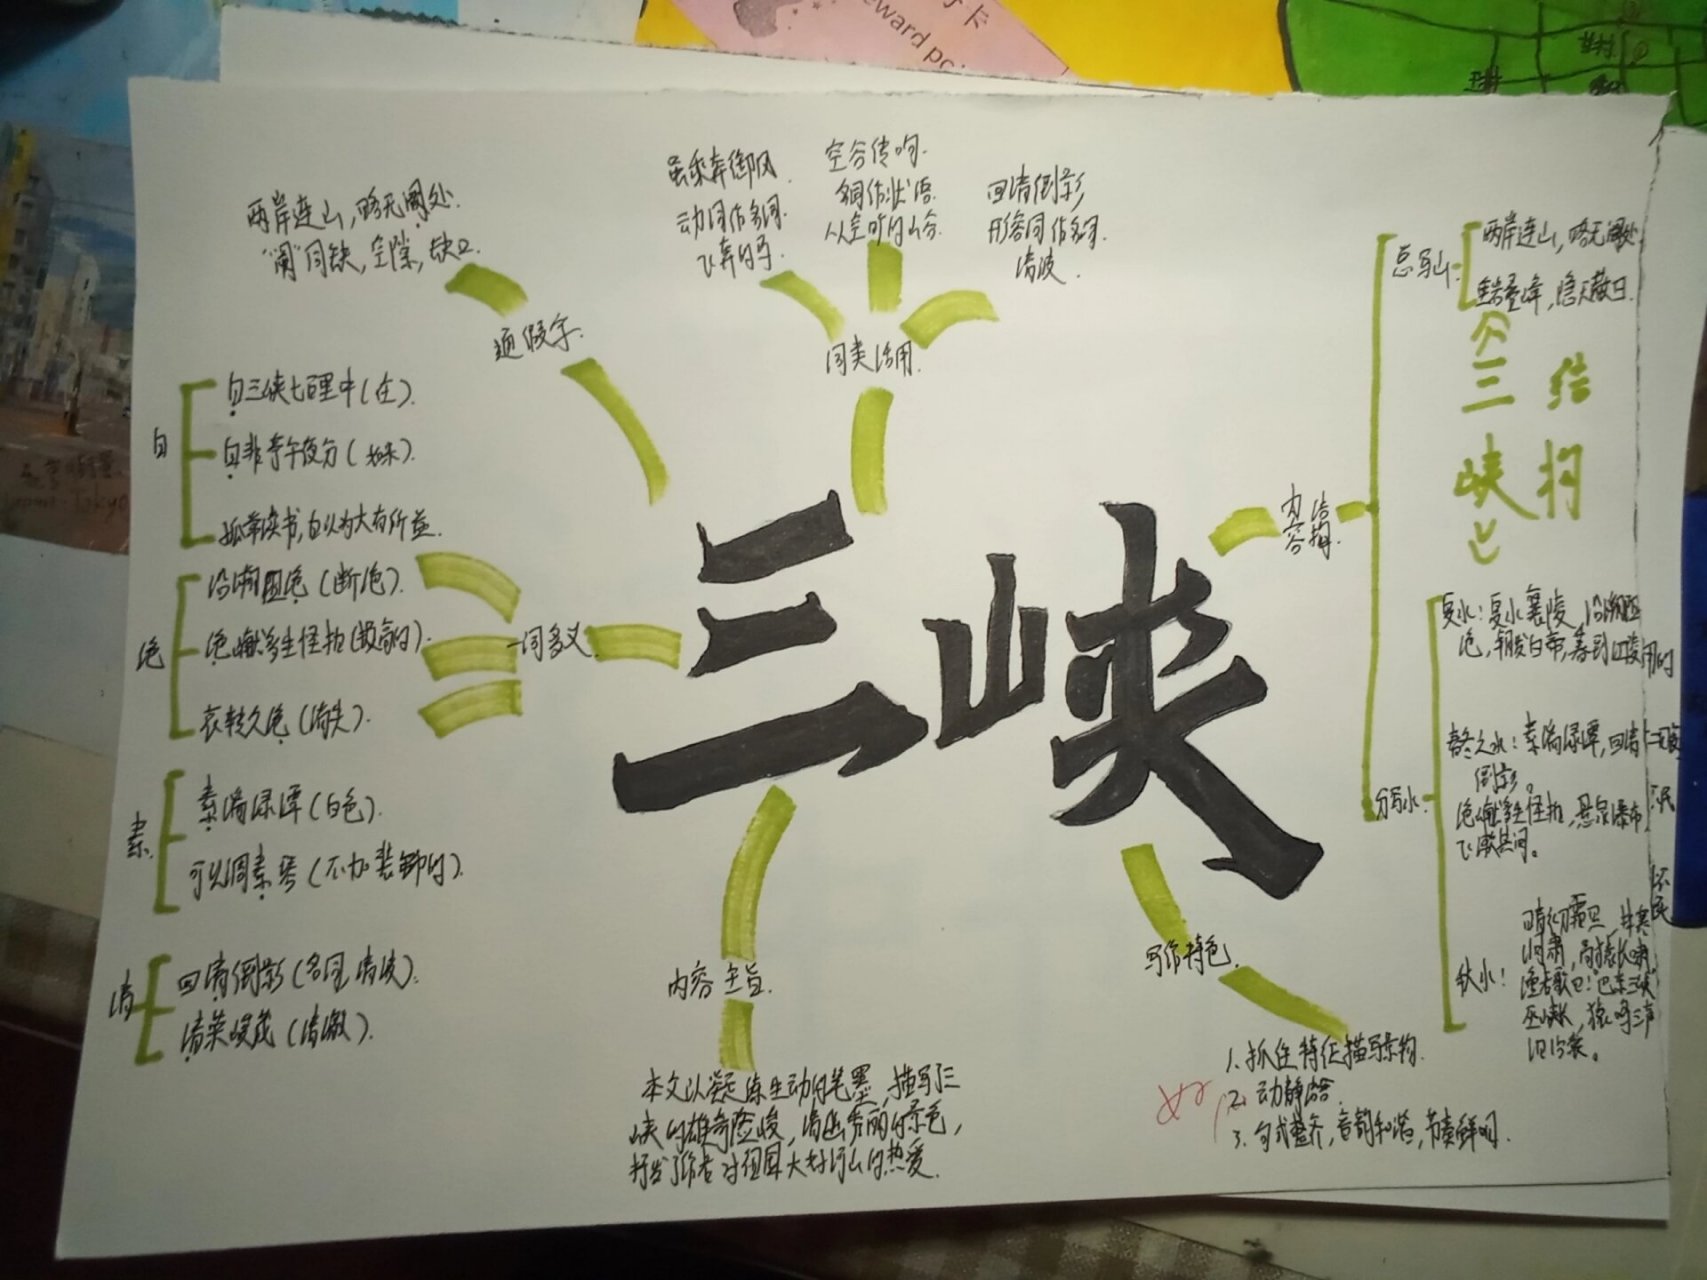 卡
reward po
两岸连山，略无阙处.
"阙"同缺，空隙，缺口.
通假字.
虽乘奔御风.
动词作名词.
飞奔的马.
空谷传响.
名词作状语.
从空旷的山谷.
回清倒影
形容词作名词.
清波.
词类活用.
自
自三峡七百里中(在).
自非亭午夜分(如果).
孤常读书,自以为大有所益.
绝
沿溯阻绝(断绝).
绝巘多生怪柏(极高的).
哀转久绝(消失).
一词多义.
素
素湍绿潭(白色).
可以调素琴(不加装饰的).
清
回清倒影(名词,清波).
清荣峻茂(清澈).
三峡
内容主旨.
本文以凝练生动的笔墨,描写三
峡的雄奇险峻,清幽秀丽的景色,
抒发了作者对祖国大好河山的热爱.
写作特色.
1.抓住特征描写景物.
2.动静结合.
3.句式整齐,音韵和谐,节奏鲜明.
内容
结构.
总写山:
两岸连山,略无阙处
重岩叠嶂,隐天蔽日.
《三峡》
结构
分写水:
夏水:夏水襄陵,沿溯阻
绝,朝发白帝,暮到江陵
春冬之水:素湍绿潭,回清
倒影。
绝巘多生怪柏,悬泉瀑布,
飞漱其间。
秋水:
晴初霜旦,林寒
涧肃,高猿长啸
渔者歌曰:"巴东三峡
巫峡长,猿鸣三声
泪沾裳。